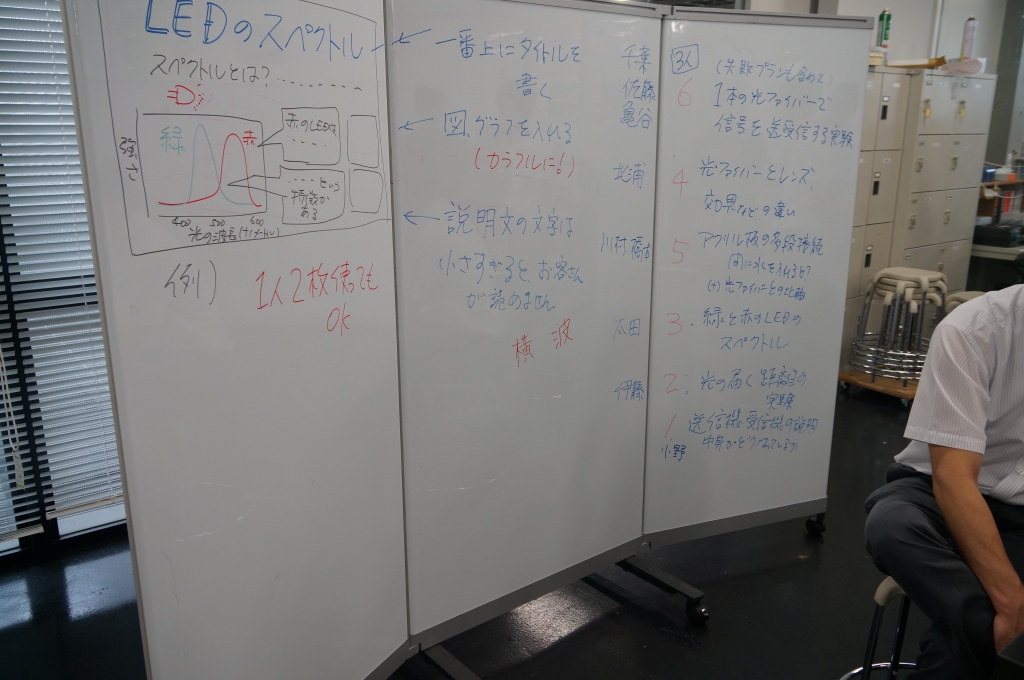 LEDのスペクトル
スペクトルとは?
緑
赤
強さ
赤のLEDは
という
特徴が
ある
400
500
600
光の波長
例)
1人2枚使ても
OK
一番上にタイトルを
書く
図、グラフを入れる
(カラフルに!)
説明文の文字は
小さすぎると、お客さん
が読めません
横波
千葉
佐藤
亀谷
3人
(失敗プランも含めて)
6
1本の光ファイバーで
信号を送受信する実験
北浦
4
光ファイバーとレンズ、
効果などの違い
川村 橋本
5
アクリル板の多経接続
間に水を入れると?
(+)光ファイバーとの比較
太田
3.
緑と赤のLEDの
スペクトル
伊藤
2.
光の届く距離の
実験
1
送信機・受信機の説明
中身がどうなっているか
小野